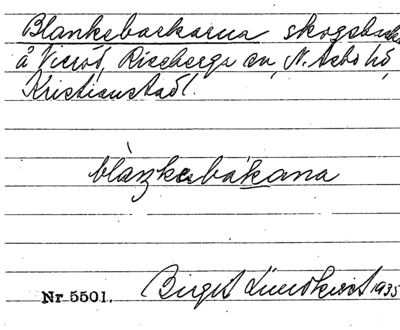 Blankebackarna skogsbackar
å Vieröd, Riseberga sn, N. Åsbo hd,
Kristianstad l.
blaŋkebákana
Nr 5501. Birgit Lundkvist 1935